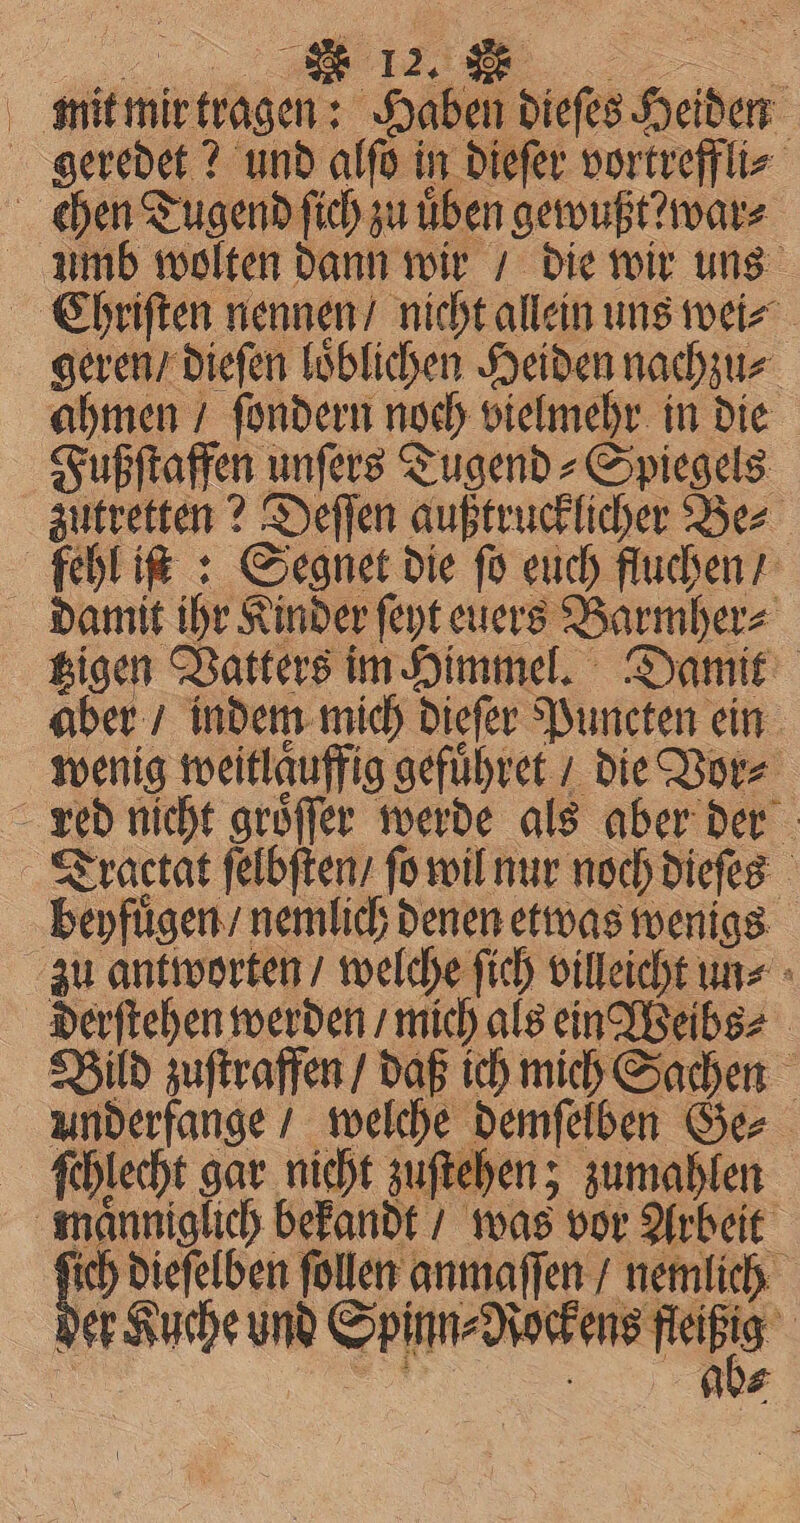 ❁ 12. ❁
mit mir tragen: Haben dieſes Heiden
geredet? und alſo in dieſer vortreffli⸗
chen Tugend ſich zu uͤben gewußt? war⸗
umb wolten dann wir / die wir uns
Chriſten nennen / nicht allein uns wei⸗
geren / dieſen loͤblichen Heiden nachzu⸗
ahmen / ſondern noch vielmehr in die
Fußſtaffen unſers Tugend⸗Spiegels
zutretten? Deſſen außtrucklicher Be⸗
fehl iſt: Segnet die ſo euch fluchen /
damit ihr Kinder ſeyt euers Barmher⸗
tzigen Vatters im Himmel. Damit
aber / indem mich dieſer Puncten ein
wenig weitlaͤuffig gefuͤhret / die Vor⸗
red nicht groͤſſer werde als aber der
Tractat ſelbſten / ſo wil nur noch dieſes
beyfuͤgen / nemlich denen etwas wenigs
zu antworten / welche ſich villeicht un⸗
derſtehen werden / mich als ein Weibs⸗
Bild zuſtraffen / daß ich mich Sachen
underfange / welche demſelben Ge⸗
ſchlecht gar nicht zuſtehen; zumahlen
maͤnniglich bekandt / was vor Arbeit
ſich dieſelben ſollen anmaſſen / nemlich
der Kuche und Spinn⸗Rockens fleißig
ab⸗